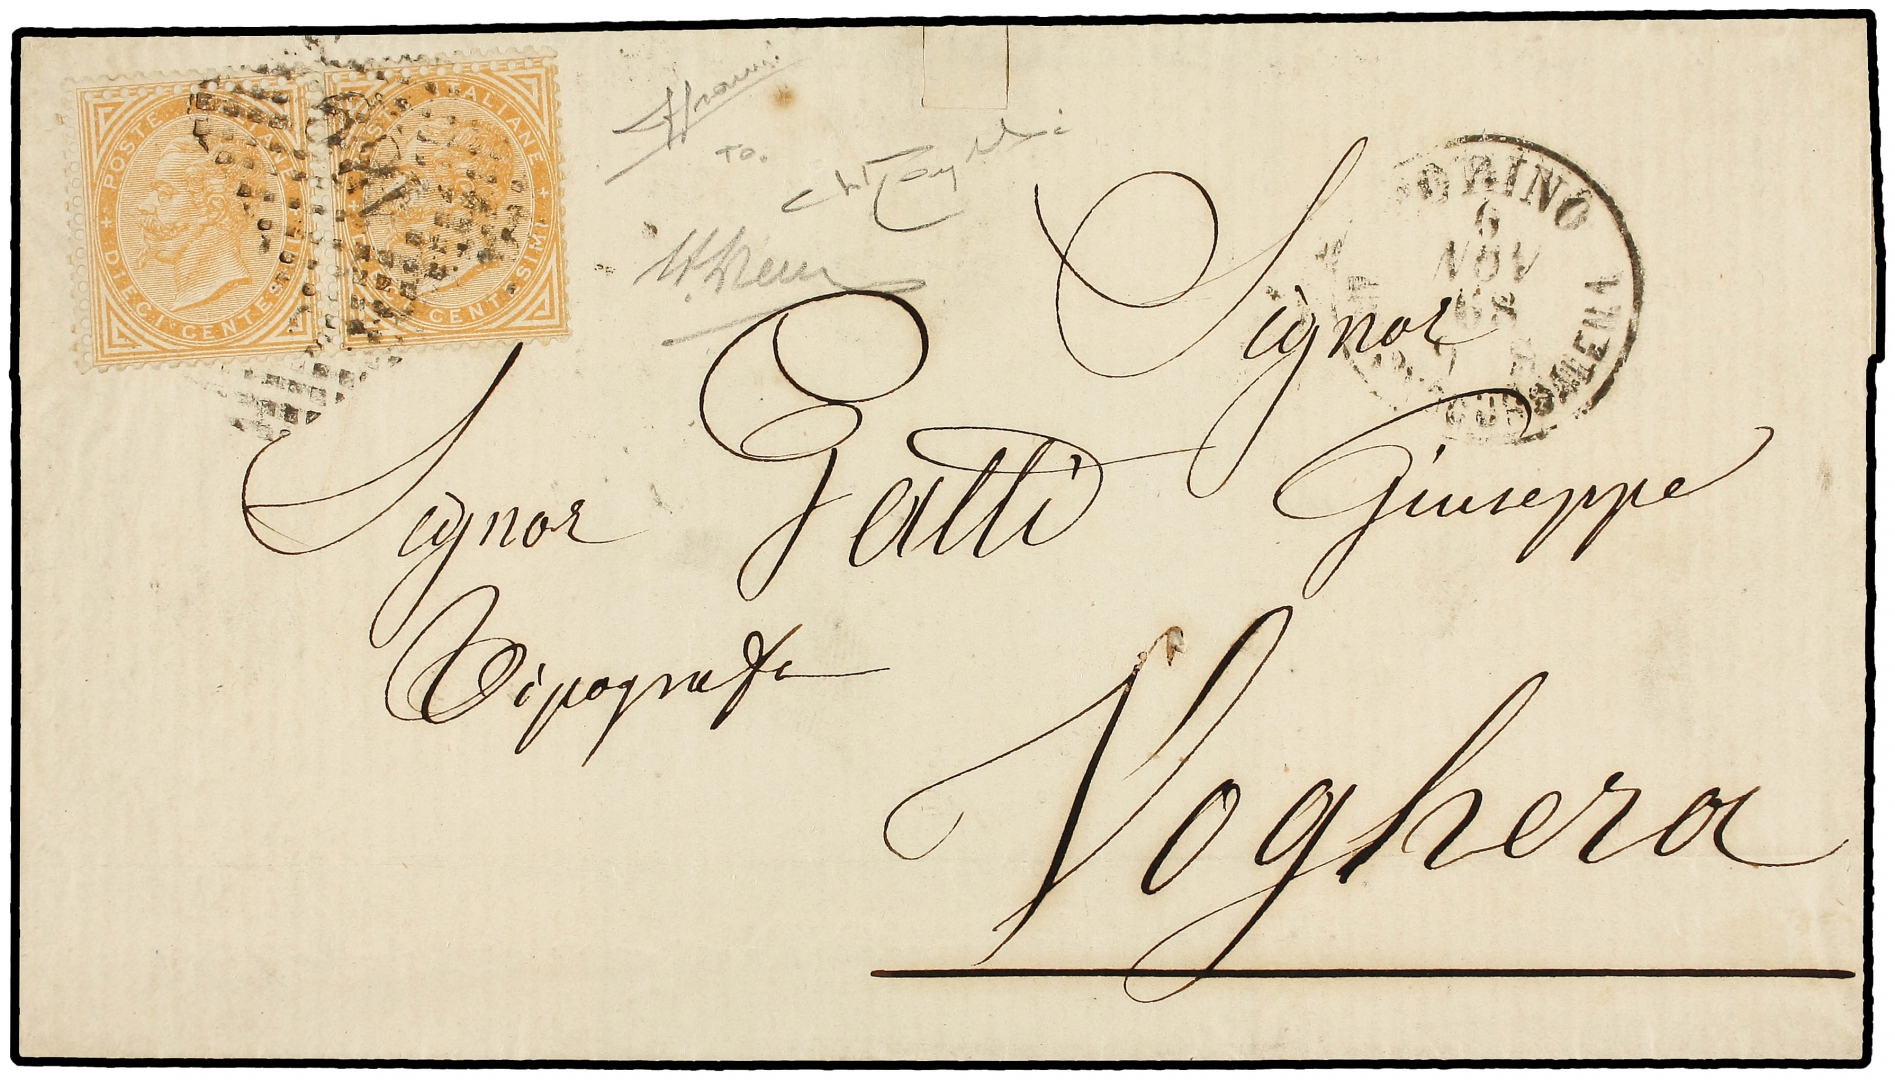 POSTE ITALIANE
DIECI CENTESIMI
POSTE ITALIANE
CENTESIMI
TORINO
6
NOV
Signor
Signor Gatti Giuseppe
Tipografo
Voghera